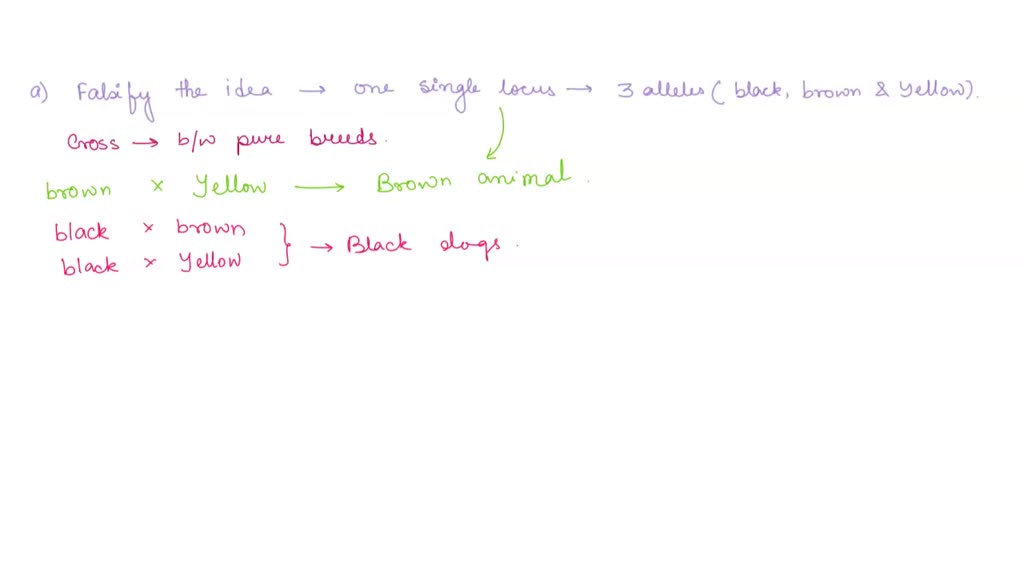 a) Falsify the idea → one single locus → 3 alleles ( black, brown & yellow).
Cross → b/w pure breeds.
brown × Yellow → Brown animal.
black × brown
black × Yellow } → Black dogs.